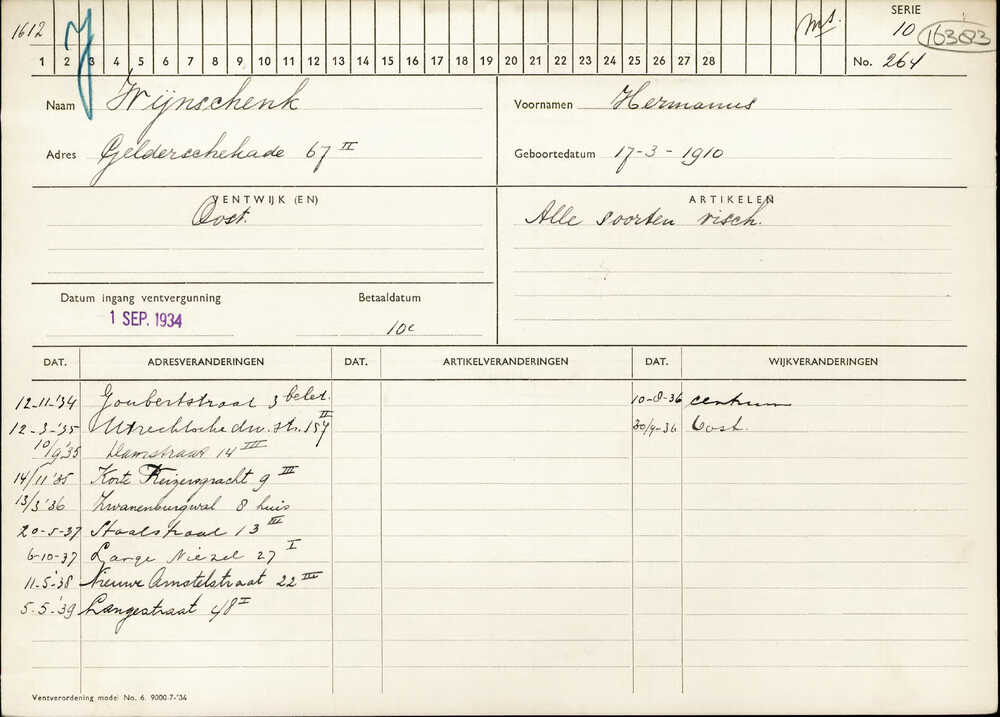 1612 J Ms. SERIE 10 16383
1 2 3 4 5 6 7 8 9 10 11 12 13 14 15 16 17 18 19 20 21 22 23 24 25 26 27 28 No. 264
Naam Wijnschenk Voornamen Hermanus
Adres Gelderschekade 67 II Geboortedatum 17-3-1910
VENTWIJK (EN) ARTIKELEN
Oost. Alle soorten visch.
Datum ingang ventvergunning Betaaldatum
1 SEP. 1934 10e
DAT. ADRESVERANDERINGEN DAT. ARTIKELVERANDERINGEN DAT. WIJKVERANDERINGEN
12-11-'34 Joubertstraat 3 belet. 10-8-36 centrum
12-3-'35 Utrechtsche dw. str. 157 II 30/9-36 Oost.
10/9'35 Damstraat 14 III
14/11'35 Korte Keizersgracht 9 III
13/3'36 Zwanenburgwal 8 huis
20-5-37 Staalstraat 13 III
6-10-37 Lange Niezel 27 I
11-5-'38 Nieuwe Amstelstraat 22 III
5-5-'39 Langestraat 48 I
Ventverordening model No. 6. 9000-7-'34